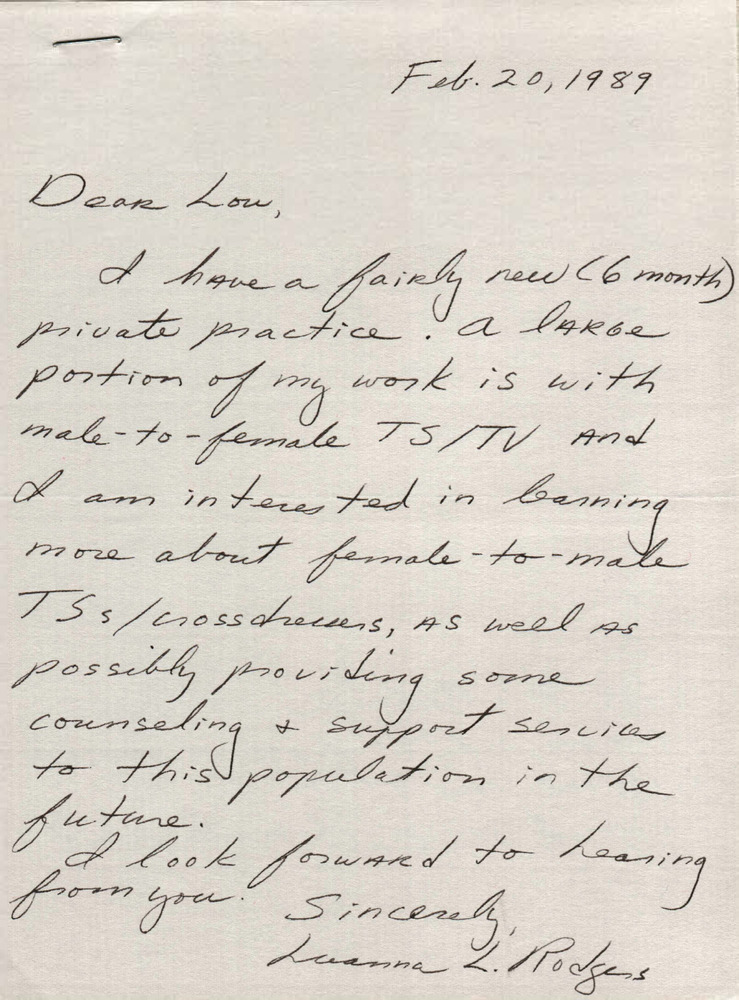 Feb. 20, 1989
Dear Lou,
I have a fairly new (6 month)
private practice. A large
portion of my work is with
male-to-female TS/TV and
I am interested in learning
more about female-to-male
TSs/crossdressers, as well as
possibly providing some
counseling & support services
to this population in the
future.
I look forward to hearing
from you.
Sincerely,
Luanna L. Rodgers